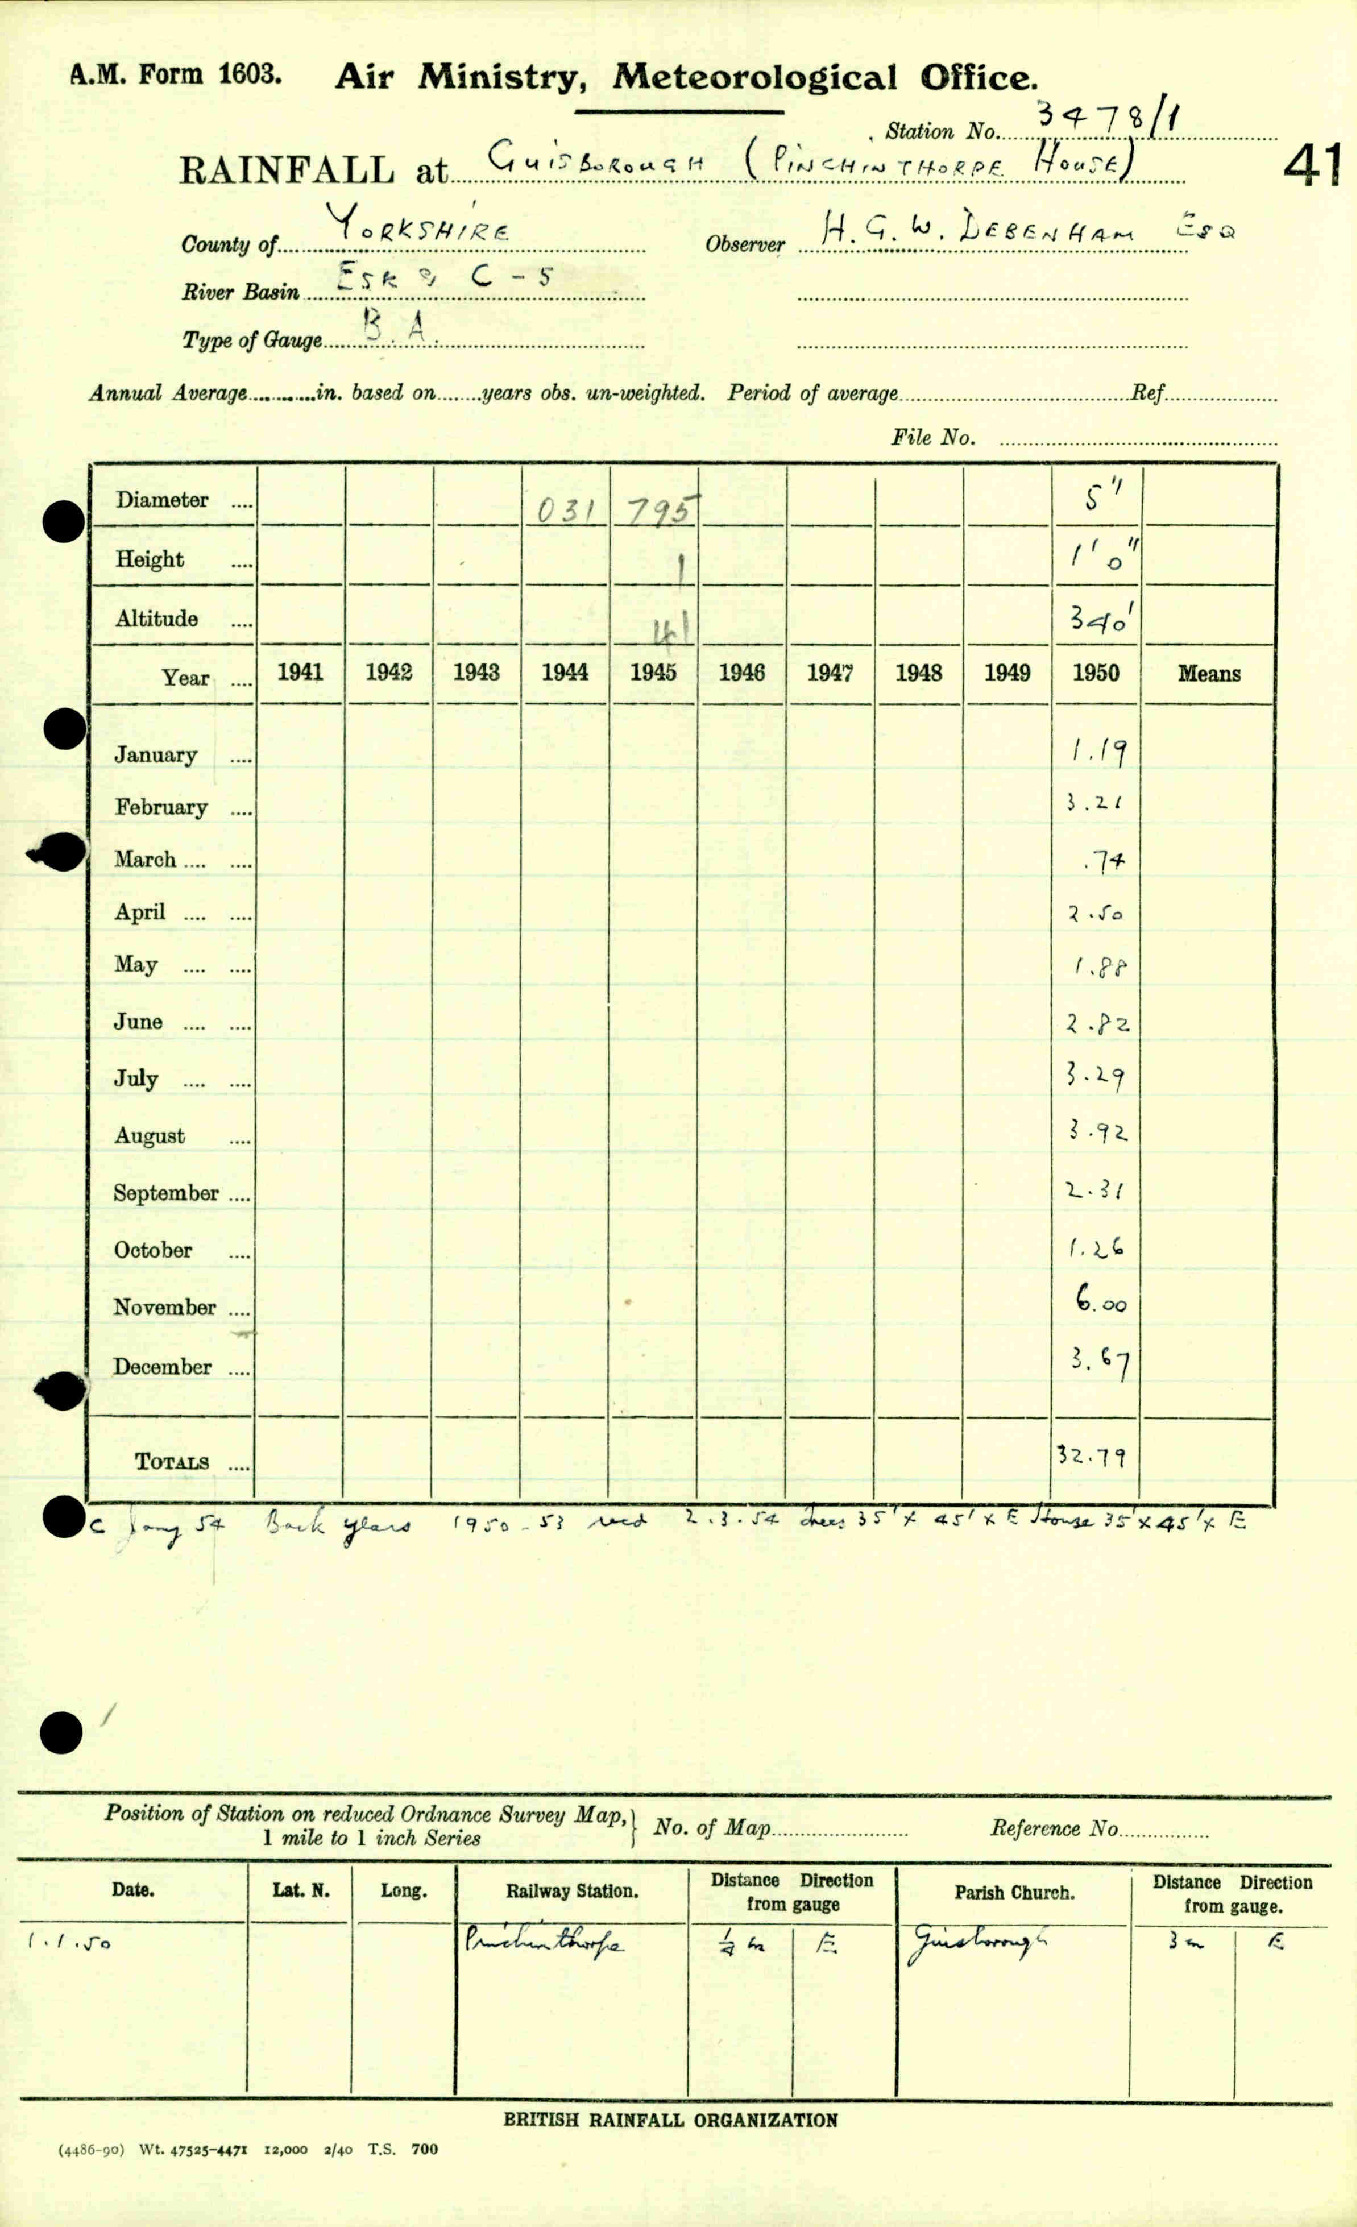 A.M. Form 1603. Air Ministry, Meteorological Office.
Station No. 3478/1
RAINFALL at Guisborough (Pinchinthorpe House) 41
County of Yorkshire Observer H. G. W. Debenham Esq
River Basin Esk & C - 5
Type of Gauge B. A.
Annual Average............in. based on........years obs. un-weighted. Period of average Ref.
File No.
Diameter .... 031 795 5"
Height .... 1 1' 0"
Altitude .... 41 340'
Year .... 1941 1942 1943 1944 1945 1946 1947 1948 1949 1950 Means
January .... 1.19
February .... 3.21
March .... .... .74
April .... .... 2.50
May .... .... 1.88
June .... .... 2.82
July .... .... 3.29
August .... 3.92
September .... 2.31
October .... 1.26
November .... 6.00
December .... 3.67
TOTALS .... 32.79
C Jany 54 Back years 1950-53 recd 2.3.54 trees 35' x 45' x E House 35' x 45' x E
Position of Station on reduced Ordnance Survey Map, } No. of Map Reference No.
1 mile to 1 inch Series
Date. Lat. N. Long. Railway Station. Distance Direction from gauge Parish Church. Distance Direction from gauge.
1.1.50 Pinchinthorpe ¼ m E Guisborough 3 m E
BRITISH RAINFALL ORGANIZATION
(4486-90) Wt. 47525-4471 12,000 2/40 T.S. 700